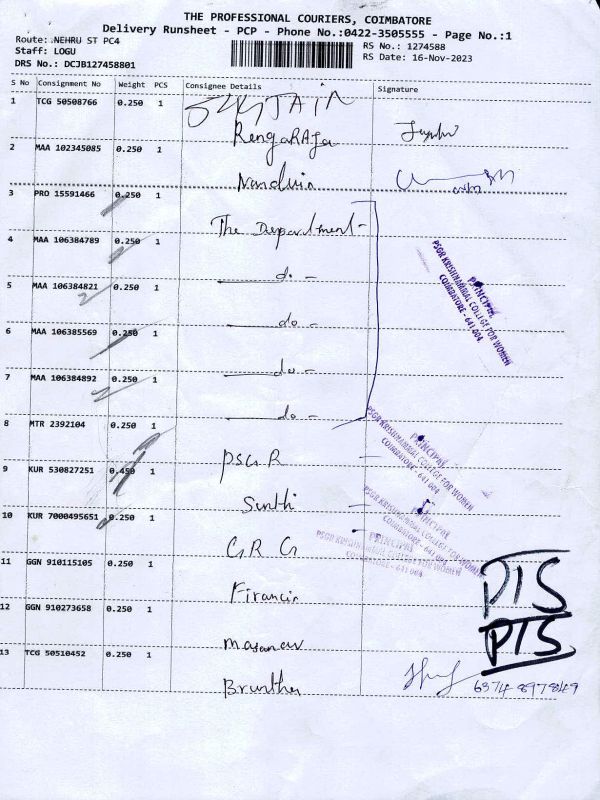 THE PROFESSIONAL COURIERS, COIMBATORE
Delivery Runsheet - PCP - Phone No.:0422-3505555 - Page No.:1
Route: NEHRU ST PC4
RS No.: 1274588
Staff: LOGU
RS Date: 16-Nov-2023
DRS No.: DCJB127458801
S No Consignment No Weight PCS Consignee Details Signature
1 TCG 50508766 0.250 1
RengaRAJa
2 MAA 102345085 0.250 1
Nandhin
3 PRO 15591466 0.250 1
The Department-
4 MAA 106384789 0.250 1
do -
5 MAA 106384821 0.250 1
do -
6 MAA 106385569 0.250 1
do -
7 MAA 106384892 0.250 1
do -
8 MTR 2392104 0.250 1
PSGR
9 KUR 530827251 0.450 1
10 KUR 7000495651 0.250 1
G R G
11 GGN 910115105 0.250 1
12 GGN 910273658 0.250 1
13 TCG 50510452 0.250 1
PRINCIPAL
PSGR KRISHNAMMAL COLLEGE FOR WOMEN
COIMBATORE - 641 004
PRINCIPAL
PSGR KRISHNAMMAL COLLEGE FOR WOMEN
COIMBATORE - 641 004
PRINCIPAL
PSGR KRISHNAMMAL COLLEGE FOR WOMEN
COIMBATORE - 641 004
PRINCIPAL
PSGR KRISHNAMMAL COLLEGE FOR WOMEN
COIMBATORE - 641 004
DTS
PTS
6374897849